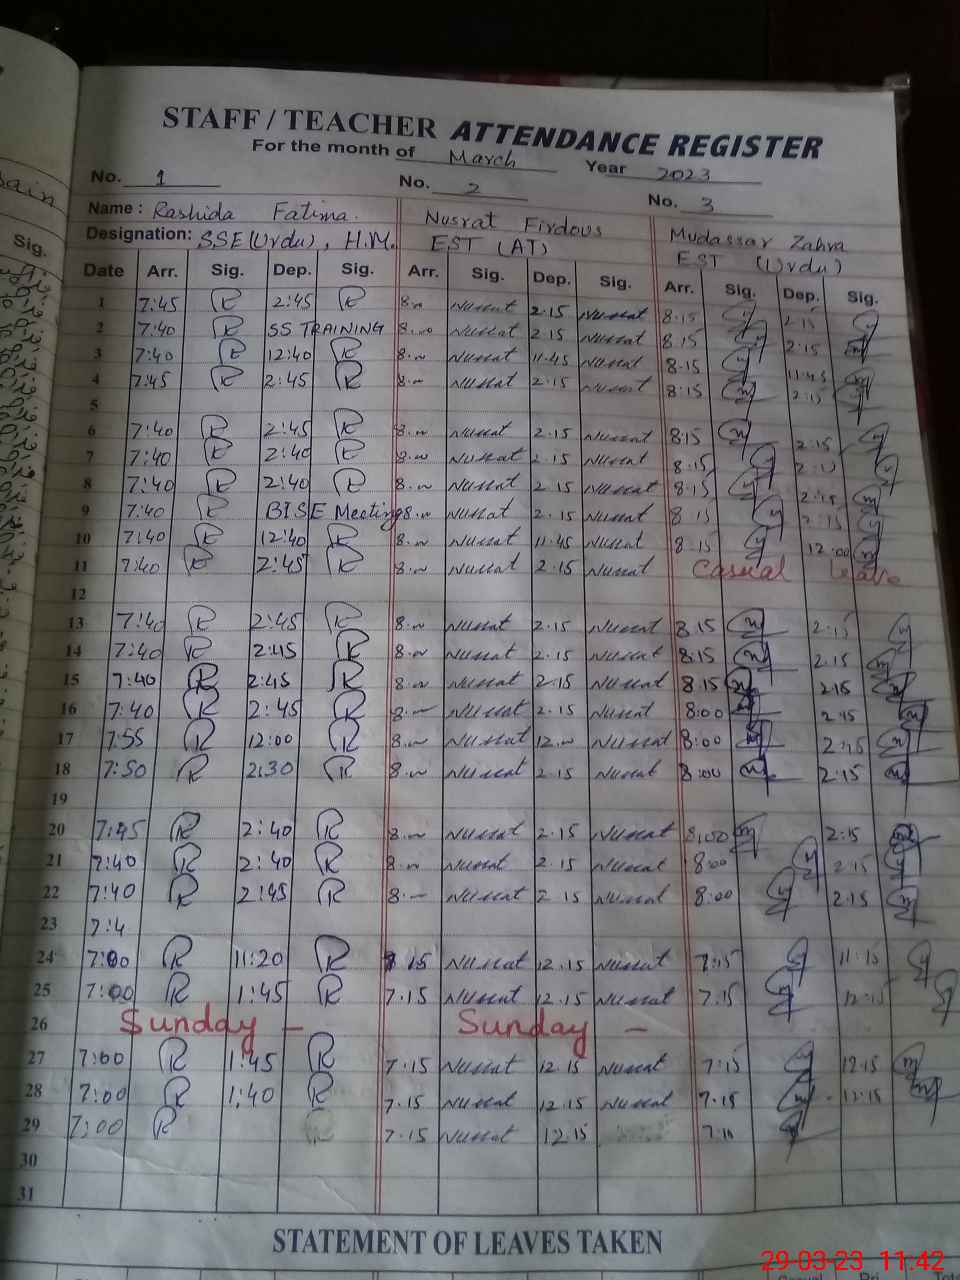 STAFF / TEACHER ATTENDANCE REGISTER
For the month of March Year 2023
No. 1 No. 2 No. 3
Name : Rashida Fatima. Nusrat Firdous Mudassar Zahra
Designation: SSE (Urdu), H.M. EST (AT) EST (Urdu)
Date Arr. Sig. Dep. Sig. Arr. Sig. Dep. Sig. Arr. Sig. Dep. Sig.
1 7:45 R 2:45 R 8. Nusrat 2.15 Nusrat 8.15 2.15
2 7:40 R SS TRAINING 8. Nusrat 2.15 Nusrat 8.15 2.15
3 7:40 R 12:40 R 8. Nusrat 11.45 Nusrat 8.15 11.45
4 7:45 R 2:45 R 8. Nusrat 2.15 Nusrat 8.15 2.15
5
6 7:40 R 2:45 R 8. Nusrat 2.15 Nusrat 8.15 2.15
7 7:40 R 2:40 R 8. Nusrat 2.15 Nusrat 8.15
8 7:40 R 2:40 R 8. Nusrat 2.15 Nusrat 8.15 2.15
9 7:40 R BISE Meeting 8. Nusrat 2.15 Nusrat 8.15 2.15
10 7:40 R 12:40 R 8. Nusrat 11.45 Nusrat 8.15 12:00
11 7:40 R 2:45 R 8. Nusrat 2.15 Nusrat Casual leave
12
13 7:40 R 2:45 R 8. Nusrat 2.15 Nusrat 8.15 2.15
14 7:40 R 2:45 R 8. Nusrat 2.15 Nusrat 8.15 2.15
15 7:40 R 2:45 R 8. Nusrat 2.15 Nusrat 8.15 2.15
16 7:40 R 2:45 R 8. Nusrat 2.15 Nusrat 8:00 2.15
17 7:55 R 12:00 R 8. Nusrat 12. Nusrat 8:00 2.15
18 7:50 R 2:30 R 8. Nusrat 2.15 Nusrat 8:00 2.15
19
20 7:45 R 2:40 R 8. Nusrat 2.15 Nusrat 8:00 2.15
21 7:40 R 2:40 R 8. Nusrat 2.15 Nusrat 8:00 2.15
22 7:40 R 2:45 R 8. Nusrat 2.15 Nusrat 8:00 2.15
23 7:4
24 7:00 R 11:20 R 7.15 Nusrat 12.15 Nusrat 7:15 11:15
25 7:00 R 1:45 R 7.15 Nusrat 12.15 Nusrat 7.15 12:15
26 Sunday - Sunday -
27 7:00 R 1:45 R 7.15 Nusrat 12.15 Nusrat 7:15 12.15
28 7:00 R 1:40 R 7.15 Nusrat 12.15 Nusrat 7.15 12.15
29 7:00 R 7.15 Nusrat 12.15
30
31
STATEMENT OF LEAVES TAKEN
29-03-23 11:42